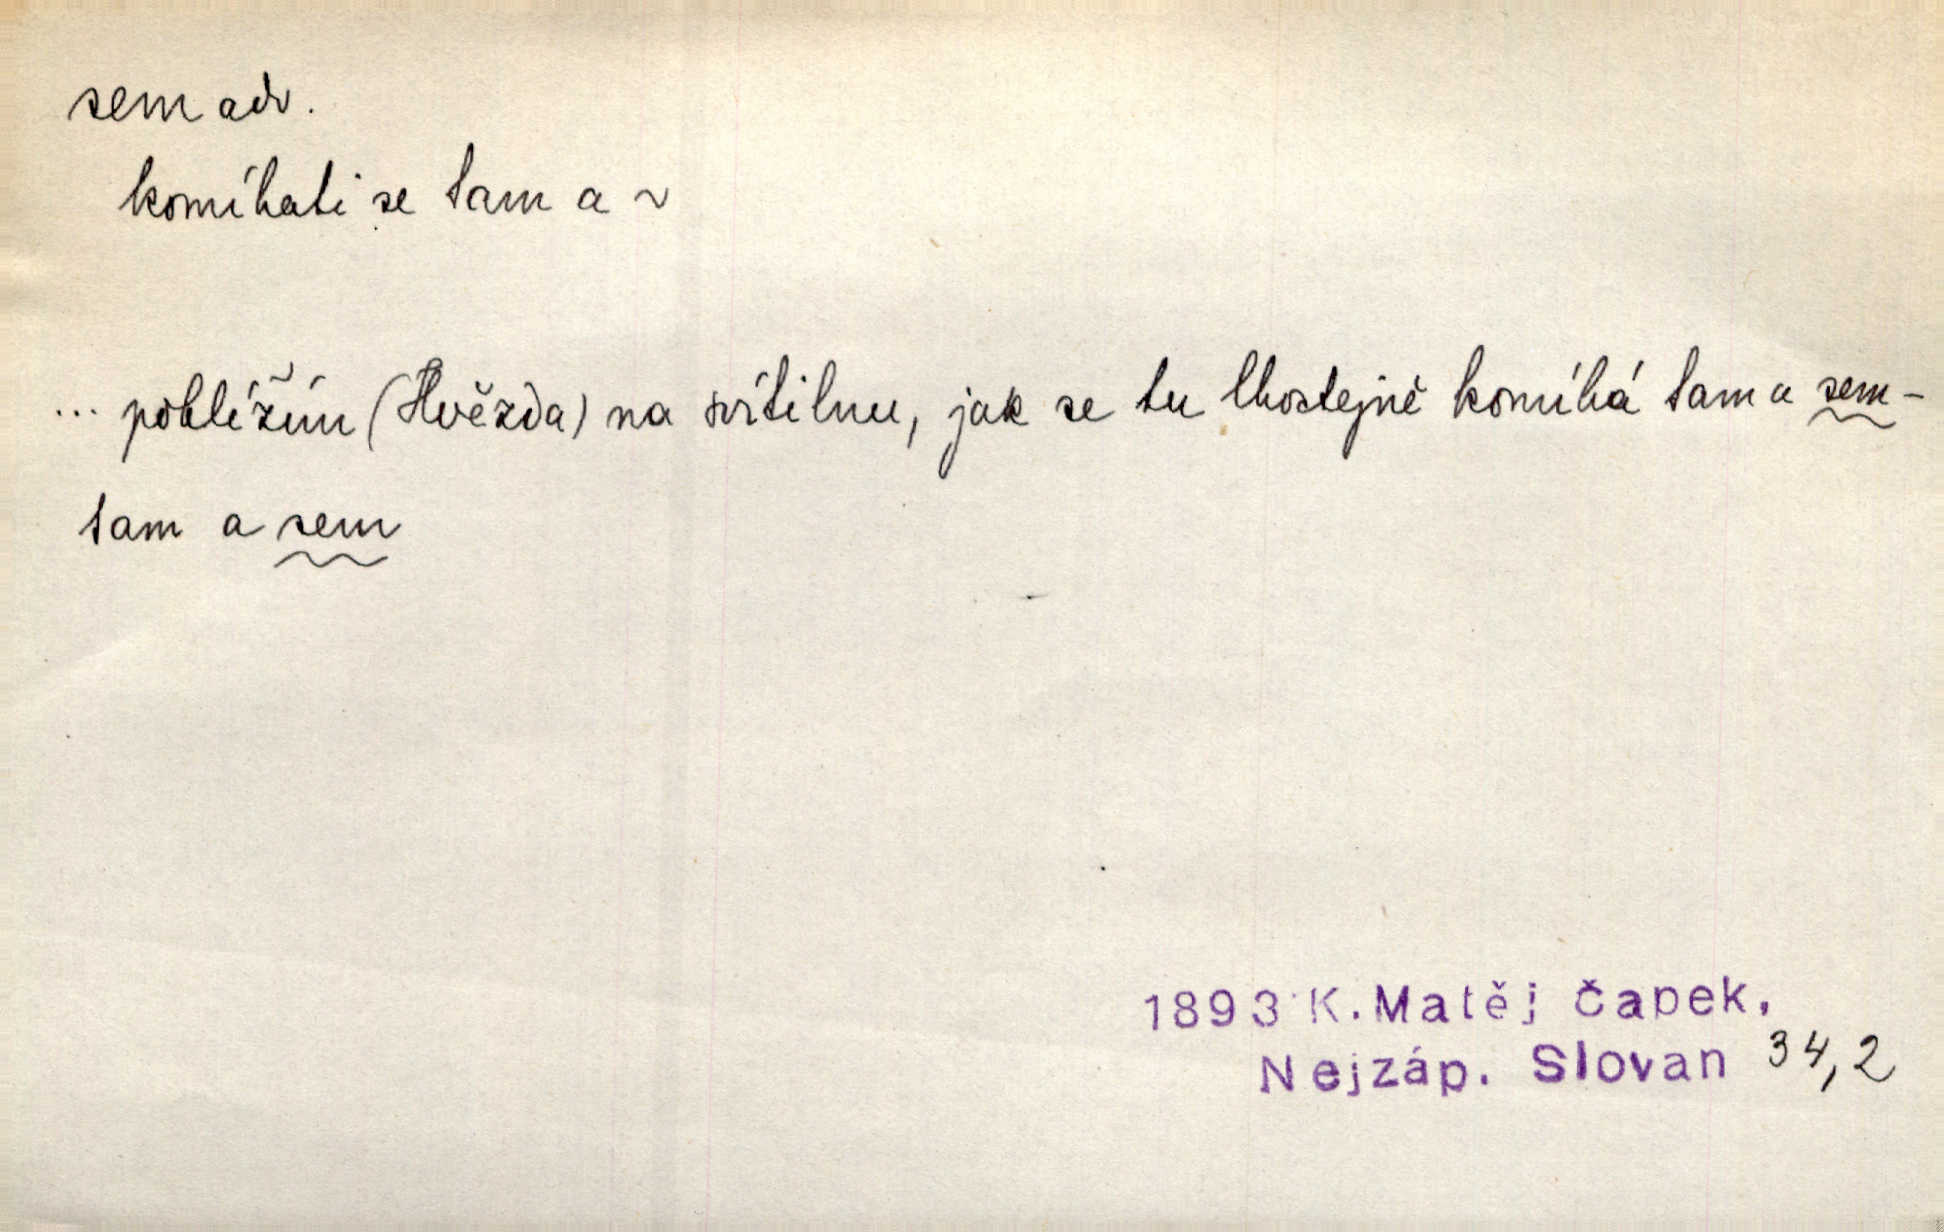 sem adv.
komíhati se tam a ~
... pohlížím (Hvězda) na svítilnu, jak se tu lhostejně komíhá tam a sem -
tam a sem
1893 K. Matěj Čapek,
Nejzáp. Slovan 34,2